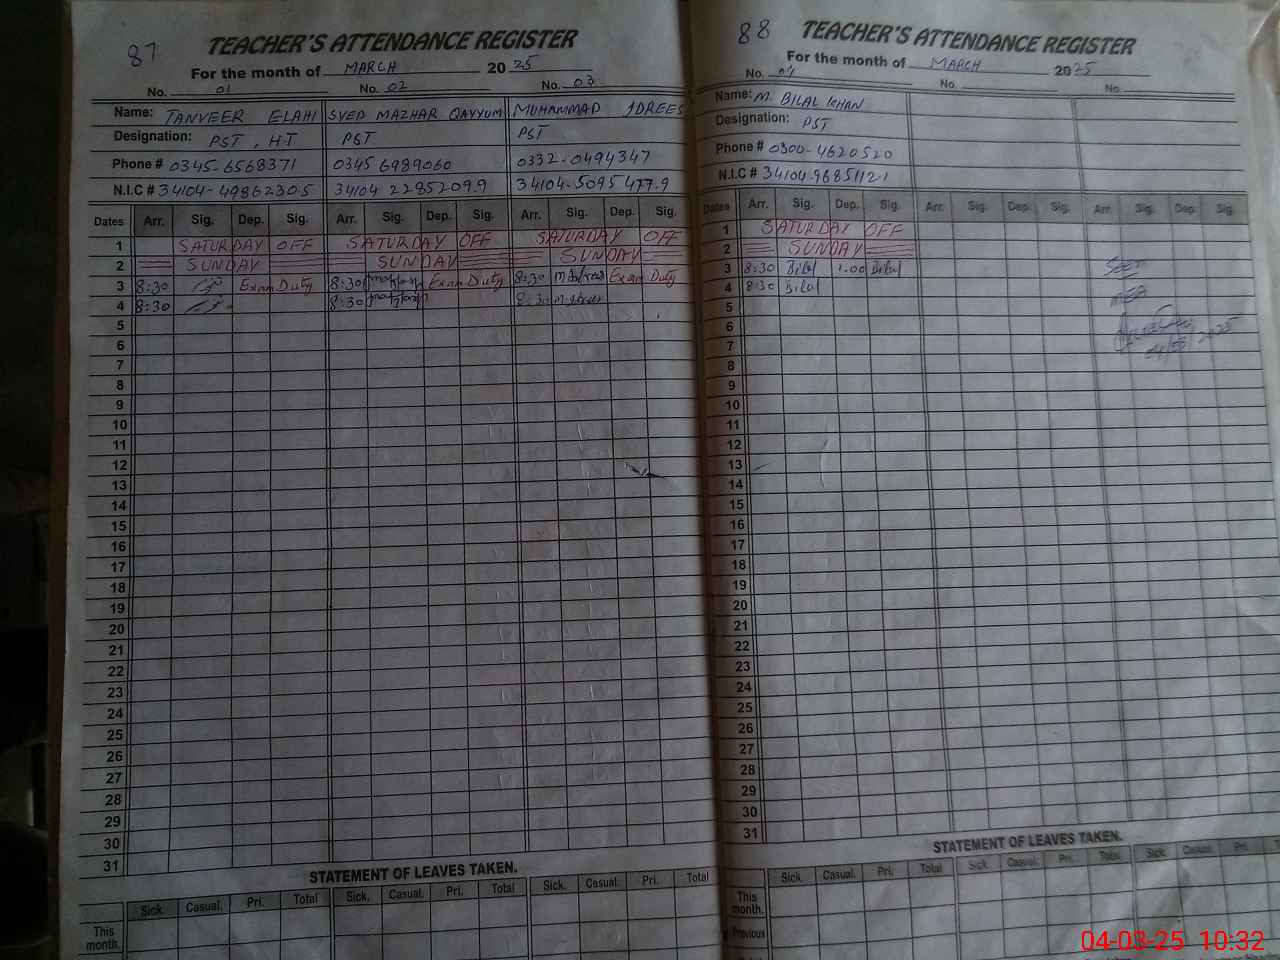 87
TEACHER'S ATTENDANCE REGISTER
For the month of MARCH 2025
No. 01 No. 02 No. 03
Name: TANVEER ELAHI SYED MAZHAR QAYYUM MUHAMMAD IDREES
Designation: PST, H.T PST PST
Phone # 0345-6568371 0345 6989060 0332-0494347
N.I.C # 34104-49862305 34104 2285209.9 34104-5095477.9
Dates Arr. Sig. Dep. Sig. Arr. Sig. Dep. Sig. Arr. Sig. Dep. Sig.
1 SATURDAY OFF SATURDAY OFF SATURDAY OFF
2 SUNDAY SUNDAY SUNDAY
3 8:30 Exam Duty 8:30 Exam Duty 8:30 M.Idrees Exam Duty
4 8:30 8:30 8:30 M.Idrees
5
6
7
8
9
10
11
12
13
14
15
16
17
18
19
20
21
22
23
24
25
26
27
28
29
30
31
STATEMENT OF LEAVES TAKEN.
Sick. Casual. Pri. Total Sick. Casual. Pri. Total Sick. Casual. Pri. Total
This month.
88
TEACHER'S ATTENDANCE REGISTER
For the month of MARCH 2025
No. 04 No. No.
Name: M. BILAL KHAN
Designation: PST
Phone # 0300-4620520
N.I.C # 34104-9685112.1
Dates Arr. Sig. Dep. Sig. Arr. Sig. Dep. Sig. Arr. Sig. Dep. Sig.
1 SATURDAY OFF
2 SUNDAY
3 8:30 Bilal 1.00 Bilal Seen
4 8:30 Bilal
5 MEA
6
7 04/03/2025
8
9
10
11
12
13
14
15
16
17
18
19
20
21
22
23
24
25
26
27
28
29
30
31
STATEMENT OF LEAVES TAKEN.
Sick. Casual. Pri. Total Sick. Casual. Pri. Total Sick. Casual. Pri.
This month.
Previous
04-03-25 10:32